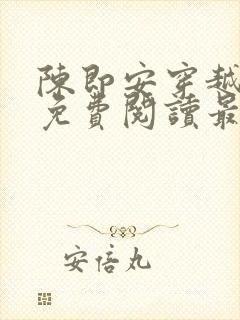 陳即安穿越
免費閱讀最
安倍丸